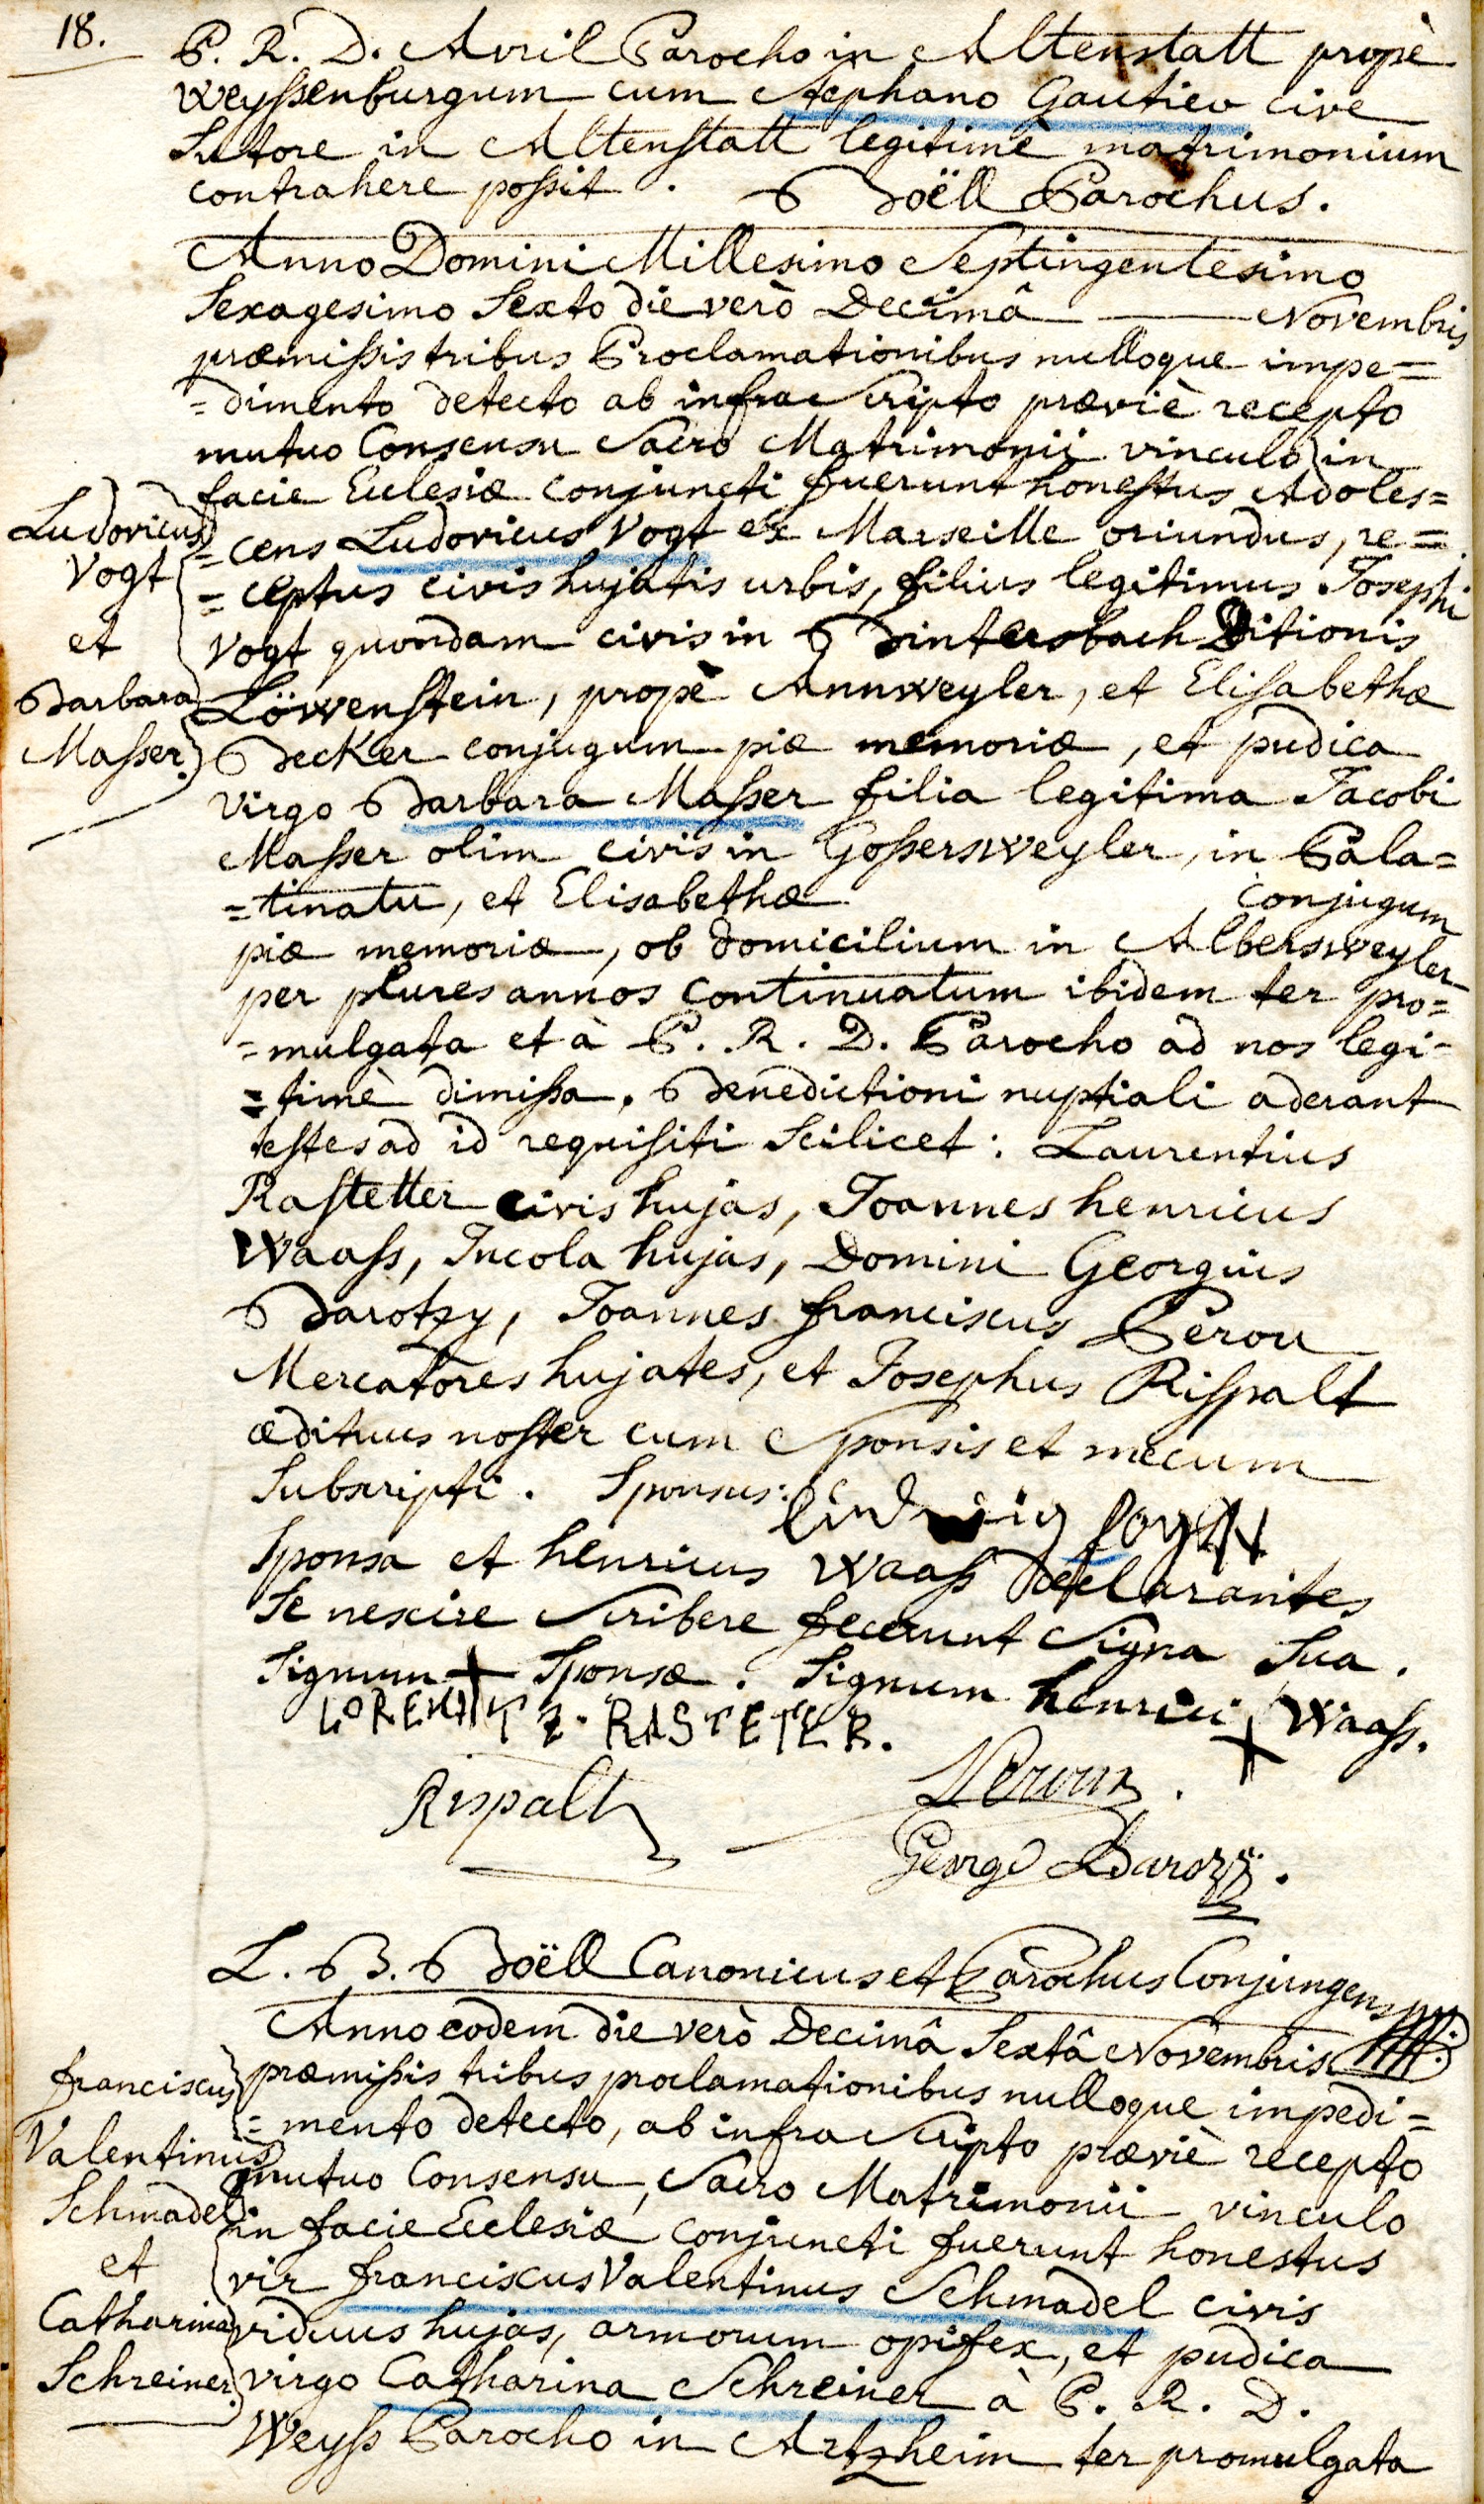 18.
P. R. D. Avril Parocho in Altenstatt propè
Weyssenburgum cum Stephano Gautier cive
Sutore in Altenstatt legitimè matrimonium
contrahere possit. Boëll Parochus.
Anno Domini Millesimo Septingentesimo
Sexagesimo Sexto die verò Decimâ — Novembris
præmissis tribus Proclamationibus nulloque impe=
=dimento detecto ab infra Scripto præviè recepto
mutuo Consensu Sacro Matrimonii vinculo in
facie Ecclesiæ conjuncti fuerunt honestus Adoles=
=cens Ludovicus Vogt ex Marseille oriundus, re=
=ceptus civis hujatis urbis, filius legitimus Josephi
Vogt quondam civis in Bintersbach Ditionis
Löwenstein, propè Annweyler, et Elisabethæ
Becker conjugum piæ memoriæ, et pudica
virgo Barbara Masser filia legitima Jacobi
Masser olim civis in Gossersweyler, in Pala=
=tinatu, et Elisabethæ conjugum
piæ memoriæ, ob domicilium in Albersweyler
per plures annos continuatum ibidem ter pro=
=mulgata et à P. R. D. Parocho ad nos legi=
=timè dimissa. Benedictioni nuptiali aderant
testes ad id requisiti Scilicet: Laurentius
Rastetter civis hujas, Joannes henricus
Waass, Incola hujas, Domini Georgius
Barotzy, Joannes franciscus Perou
Mercatores hujates, et Josephus Rispalt
ædituus noster cum Sponsis et mecum
Subscripti. Sponsus: Ludwig fogt
Sponsa et henricus Waass declarantes
Se nescire Scribere fecerunt Signa Sua.
Signum + Sponsæ. Signum henrici + Waass.
LORENTZ. RASTETER.
Rispalt
Georg Barozzy.
L. B. Boëll Canonicus et Parochus Conjungens
Anno eodem die verò Decimâ Sextâ Novembris
præmissis tribus proclamationibus nulloque impedi=
=mento detecto, ab infra Scripto præviè recepto
mutuo Consensu, Sacro Matrimonii vinculo
in facie Ecclesiæ conjuncti fuerunt honestus
vir franciscus Valentinus Schmadel civis
viduus hujas, armorum opifex, et pudica
virgo Catharina Schreiner à P. R. D.
Weyss Parocho in Artzheim ter promulgata
Ludovicus
Vogt
et
Barbara
Masser.
franciscus
Valentinus
Schmadel
et
Catharina
Schreiner.